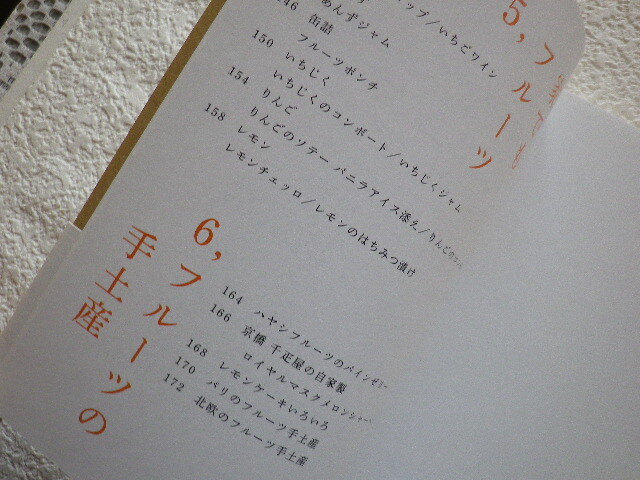 5,フルーツ
ップ/いちごワイン
あんずジャム
146 缶詰
フルーツポンチ
150 いちじく
いちじくのコンポート/いちじくジャム
154 りんご
りんごのソテー バニラアイス添え/りんごの
158 レモン
レモンチェッロ/レモンのはちみつ漬け
6,フルーツの
手土産
164 ハヤシフルーツのパインゼリー
166 京橋 千疋屋の自家製
ロイヤルマスクメロンシャー
168 レモンケーキいろいろ
170 パリのフルーツ手土産
172 北欧のフルーツ手土産